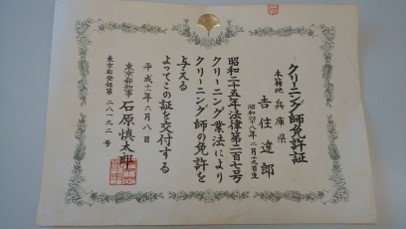 クリーニング師免許証
本籍地 兵庫県
吉住達郎
昭和四十八年 二月二十九日生
昭和二十五年法律第二百七号
クリーニング業法により
クリーニング師の免許を
与える
よってこの証を交付する
平成十一年六月八日
東京都知事 石原慎太郎
東京都登録第 二八一九二 号